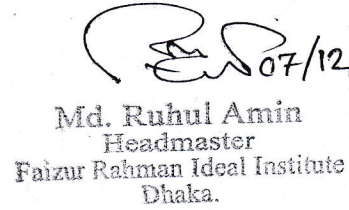 07/12
Md. Ruhul Amin
Headmaster
Faizur Rahman Ideal Institute
Dhaka.